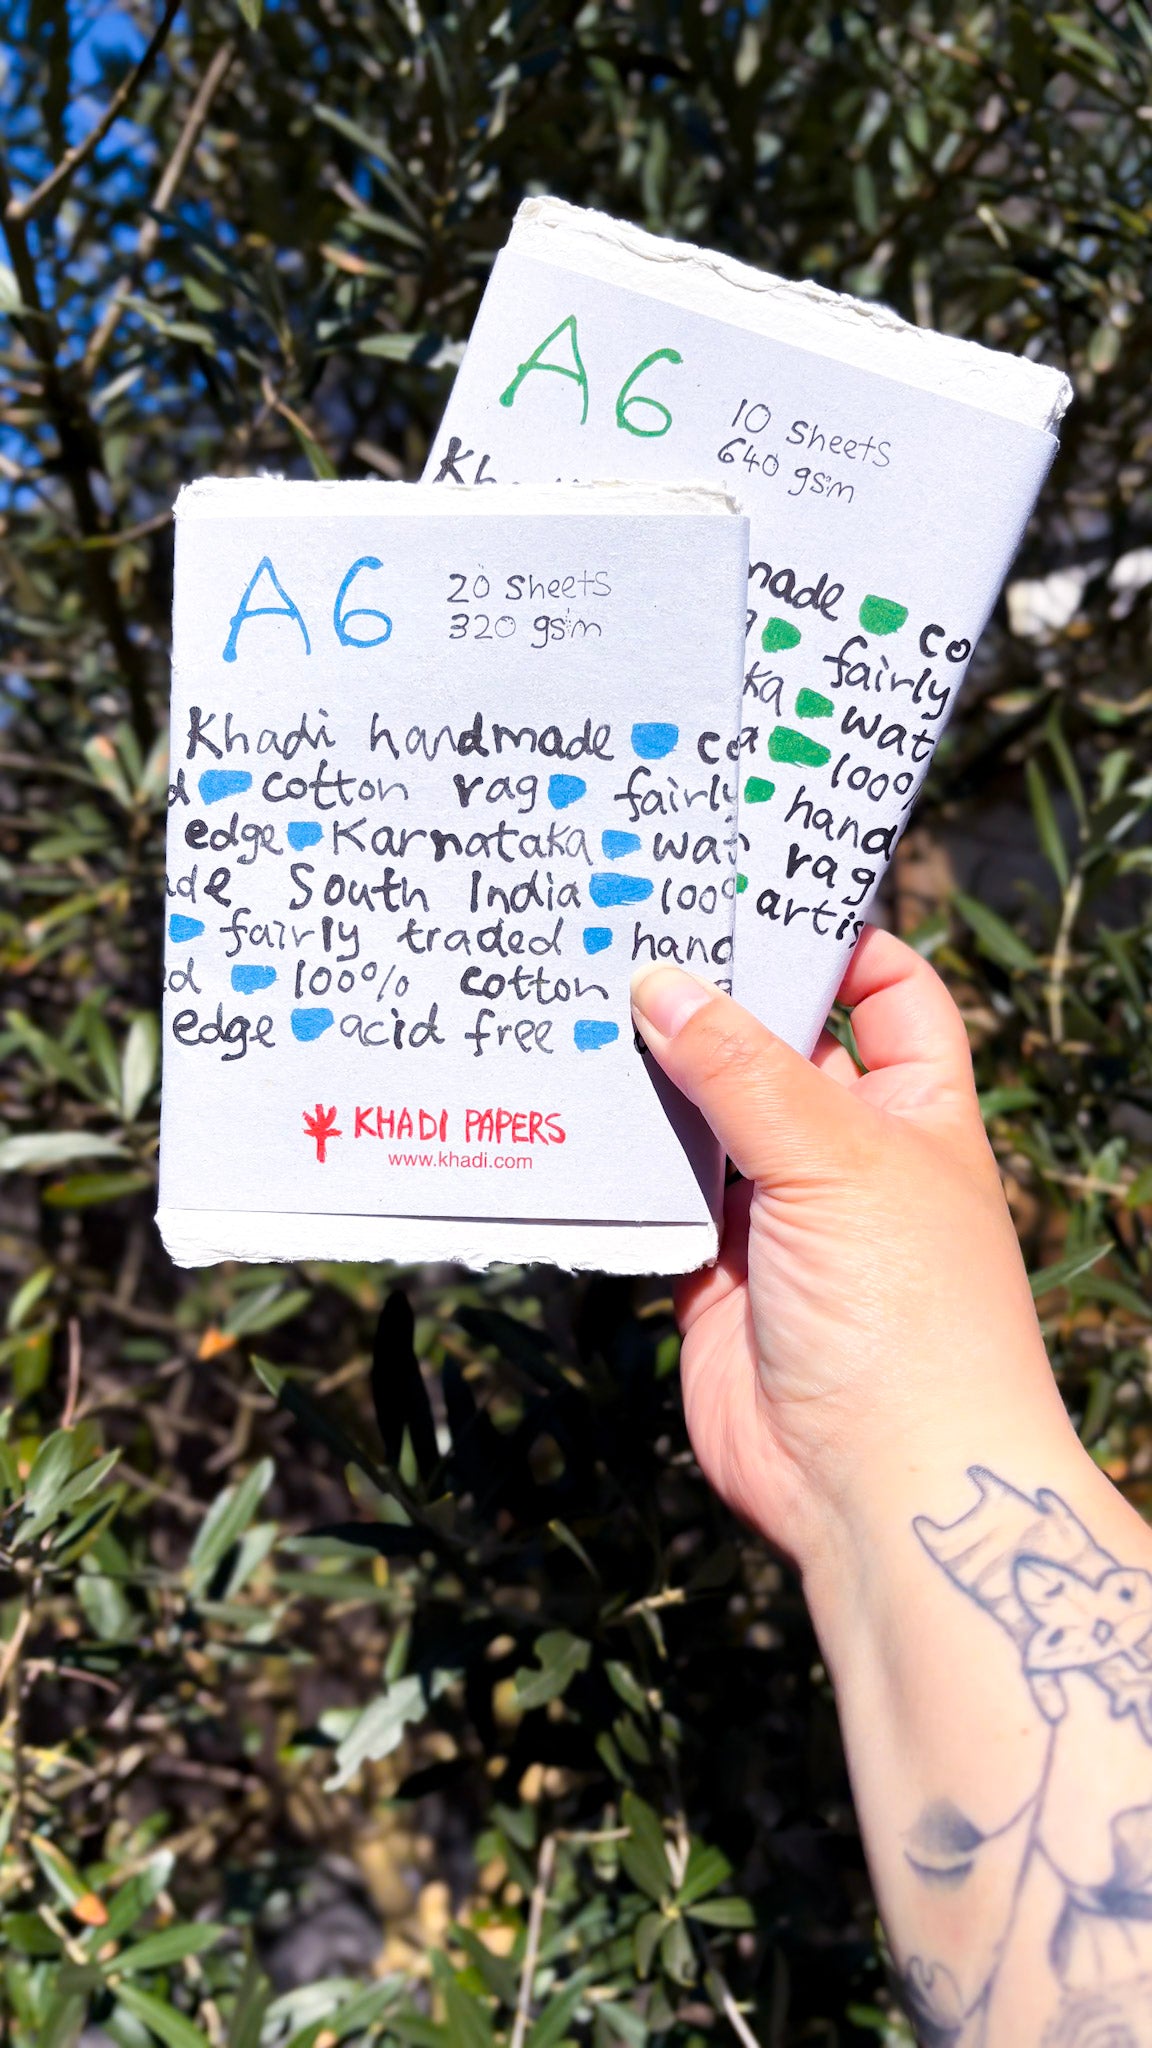 A6
10 sheets
640 gsm
co
fairly
100%
hand
rag
A6
20 sheets
320 gsm
Khadi handmade
cotton rag fairly
edge Karnataka
South India
fairly traded
100% cotton
edge acid free
KHADI PAPERS
www.khadi.com